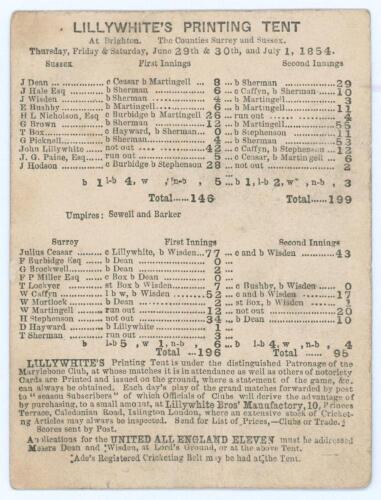 LILLYWHITE'S PRINTING TENT
At Brighton. The Counties Surrey and Sussex.
Thursday, Friday & Saturday, June 29th & 30th, and July 1, 1854.
Sussex First Innings Second Innings
J Dean ........ c Ceasar b Martingell ... 8 ... b Sherman ........ 29
J Hale Esq ... b Sherman ........ 6 ... c Caffyn, b Sherman ... 10
J Wisden ...... b Sherman ........ 4 ... b Martingell ........ 3
E Bushby ...... b Martingell ........ 6 ... b Martingell ........ 11
H L Nicholson, Esq c Burbidge b Martingell 26 ... run out ........ 4
G Brown ........ b Sherman ........ 12 ... b Martingell ........ 55
T Box ........ c Hayward, b Sherman ... 0 ... b Stephenson ........ 11
G Picknell ...... b Sherman ........ 4 ... b Sherman ........ 53
John Lillywhite .. not out ........ 42 ... c Caffyn, b Stephenson ... 12
J. G. Paine, Esq ... run out ........ 5 ... c Ceasar, b Martingell ... 6
J Hodson ........ c Burbidge b Stephenson 28 ... not out ........ 2
b 1 l-b 4, w , n-b , 5 ... b 1, l-b 2, w , n-b , 3
Total ...... 146 Total ...... 199
Umpires: Sewell and Barker
Surrey First Innings Second Innings
Julius Ceasar ..... c Lillywhite, b Wisden ... 77 ... c and b Wisden ........ 43
F Burbidge Esq ... b Dean ........ 0 ...
G Brockwell ...... b Dean ........ 2 ...
F P Miller Esq ... c Box b Dean ........ 0 ...
T Lockyer ........ st Box b Wisden ........ 7 ... c Bushby, b Wisden ... 0
W Caffyn ........ l b w, b Wisden ........ 52 ... c and b Wisden ........ 17
W Mortlock ...... b Dean ........ 2 ... st Box, b Wisden ........ 1
W Martingell ...... run out ........ 12 ... not out ........ 20
H Stephenson ...... not out ........ 34 ... b Dean ........ 10
D Hayward ........ b Lillywhite ........ 1 ...
T Sherman ........ run out ........ 3 ...
b l-b 5, w 1, n-b , 6 b l-b 4, w , n-b , 4
Total .... 196 Total ...... 95
LILLYWHITE'S Printing Tent is under the distinguished Patronage of the
Marylebone Club, at whose matches it is in attendance as well as others of notoriety
Cards are Printed and issued on the ground, where a statement of the game, &c.
can always be obtained. Each day's play of the grand matches forwarded by post
to "season Subscribers" of which Officials of Clubs will derive the advantage of
by purchasing, to a small amount, at Lillywhite Bros' Manufactory, 10, Princes
Terrace, Caledonian Road, Islington London, where an extensive stock of Cricket-
ing Articles may always be inspected. Send for List of Prices,—Clubs or Trade.
Scores sent by Post.
Applications for the UNITED ALL ENGLAND ELEVEN must be addressed
Messrs Dean and Wisden, at Lord's Ground, or at the above Tent.
Ade's Registered Cricketing Belt may be had at the Tent.